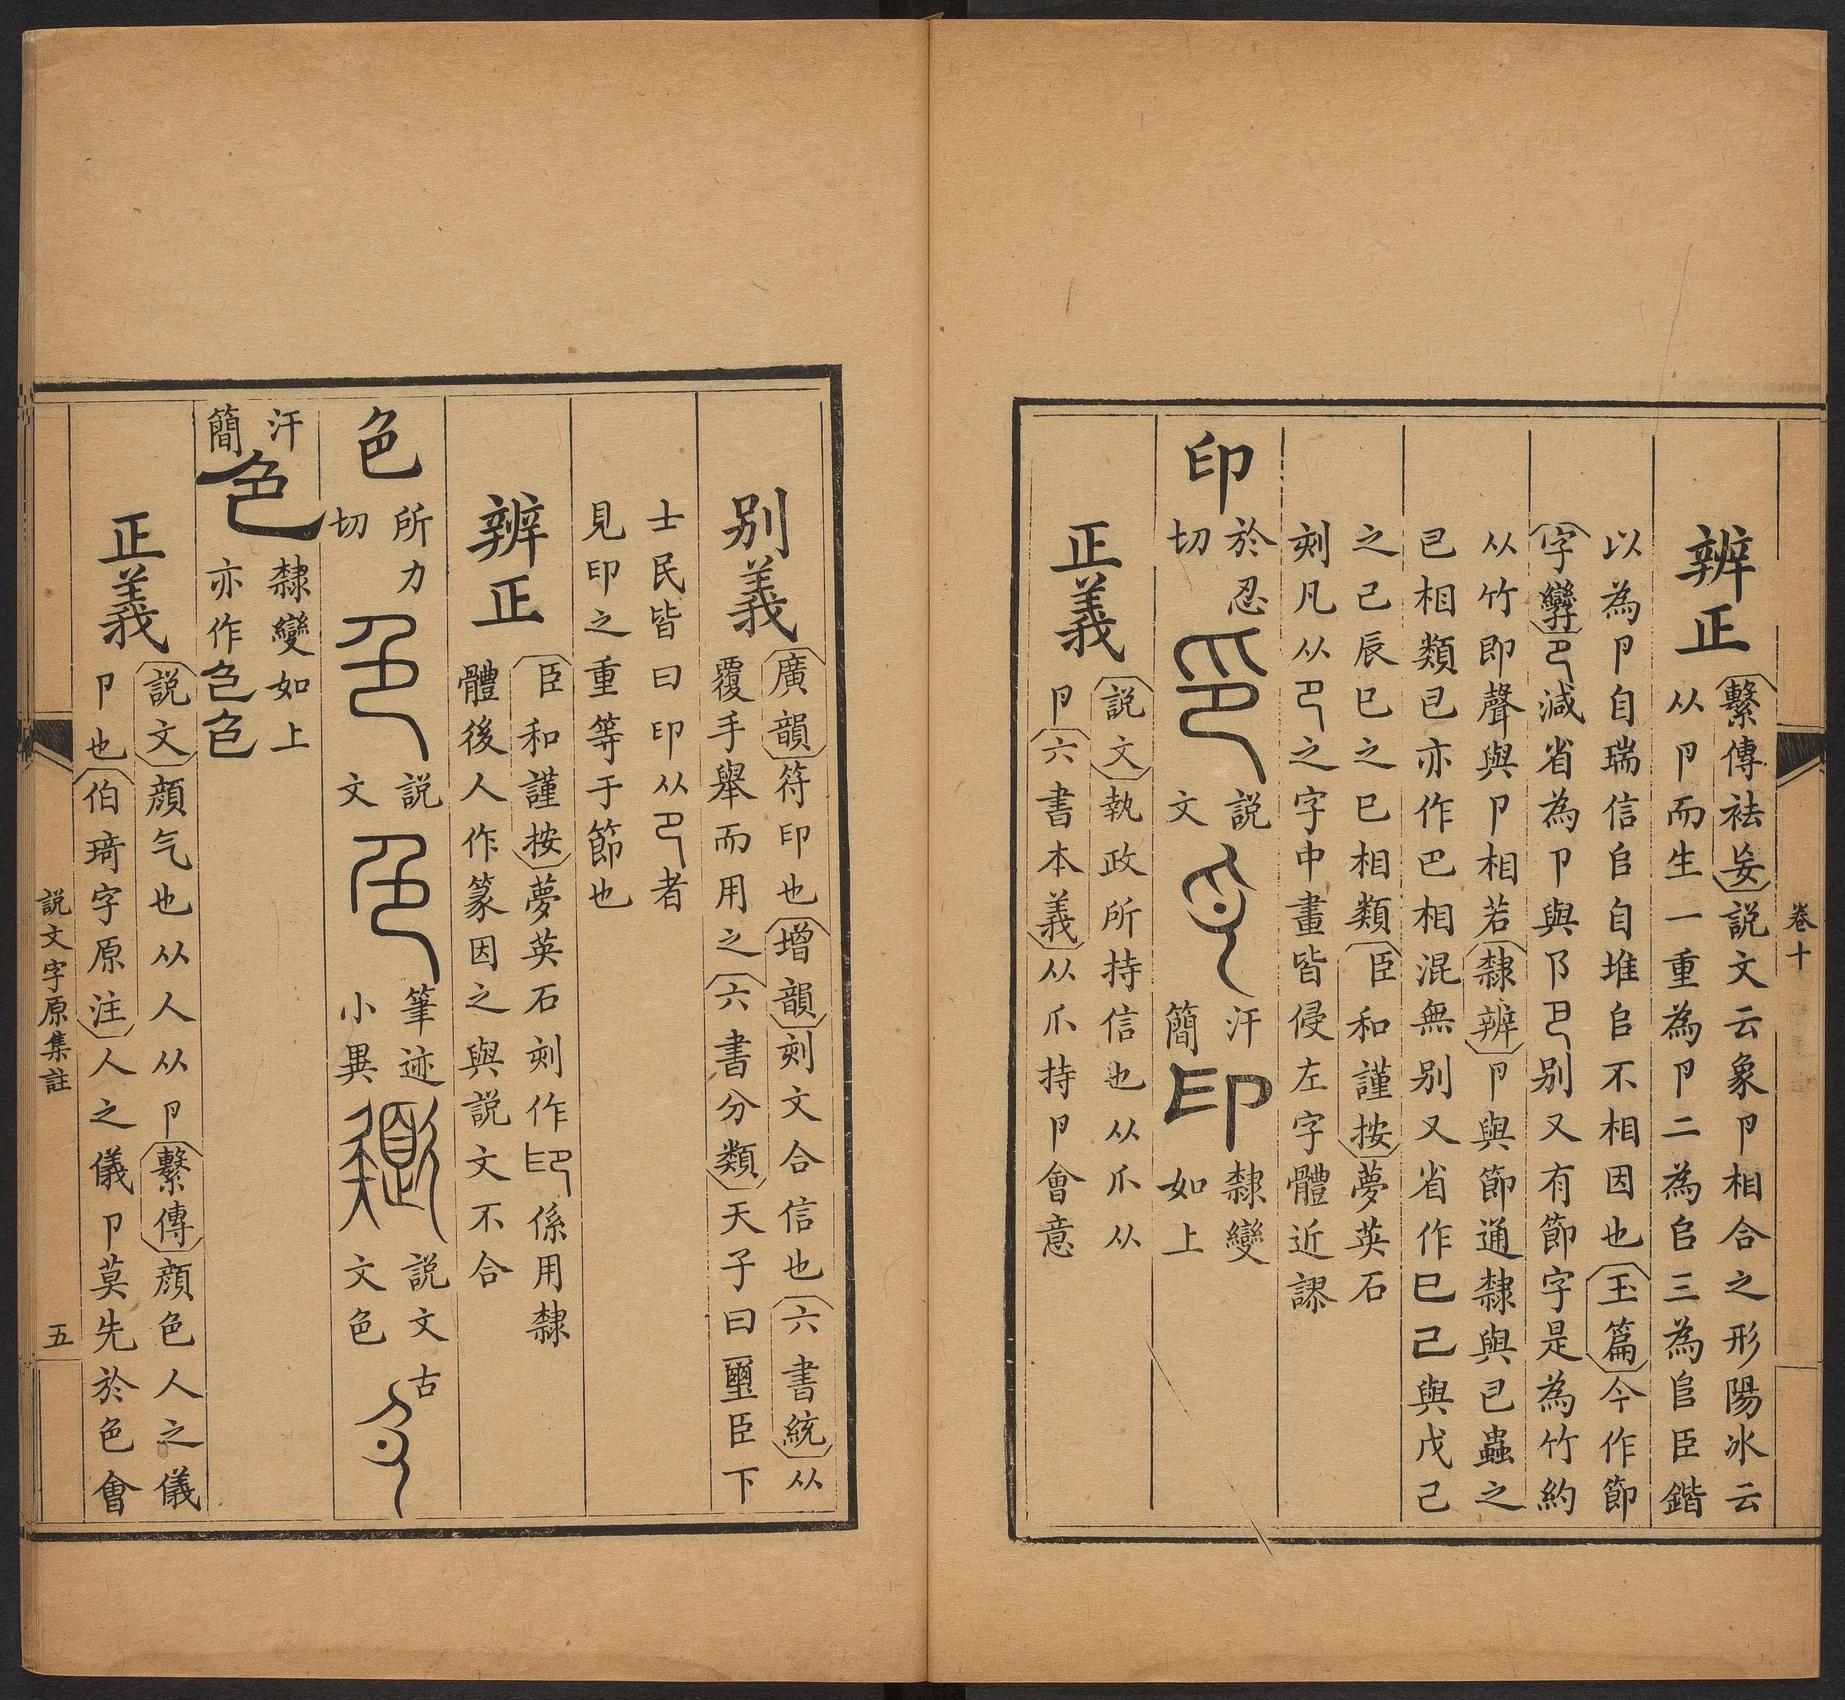 卷十
辨正
繫傳祛妄説文云象卪相合之形陽冰云
从卪而生一重為卪二為㠯三為𠂤臣鍇
以為卪自瑞信㠯自堆㠯不相因也玉篇今作節
字孿㔾減省為卩與阝㔾别又有節字是為竹約
从竹即聲與卪相若隸辨卪與節通隸與已蟲之
已相類已亦作巴相混無别又省作巳己與戊己
之己辰巳之巳相類臣和謹按夢英石
刻凡从㔾之字中畫皆侵左字體近謬
印
於忍
切
説
文
汗
簡
印
隸變
如上
正義
説文執政所持信也从爪从
卪六書本義从爪持卪會意
别義
廣韻符印也增韻刻文合信也六書統从
覆手舉而用之六書分類天子曰璽臣下
士民皆曰印从㔾者
見印之重等于節也
辨正
臣和謹按夢英石刻作係用隸
體後人作篆因之與説文不合
色
所力
切
説
文
筆迹
小異
説文古
文色
汗
簡
色
隸變如上
亦作色色
正義
説文顔气也从人从卪繫傳顔色人之儀
卪也伯琦字原注人之儀卪莫先於色會
説文字原集註
五